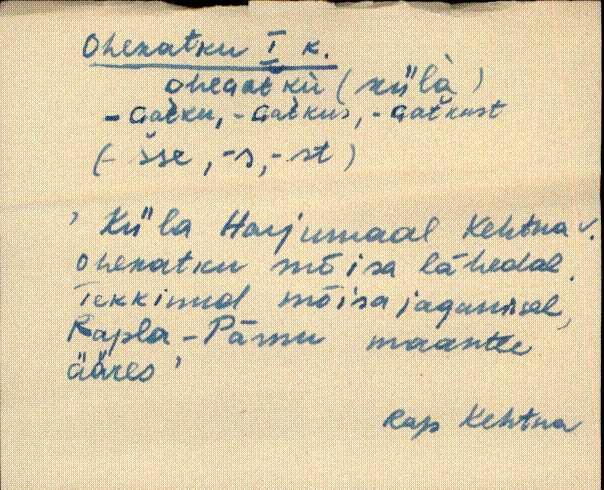 Ohekatku I k.
ohegatkù (külà)
-Gatku, -Gatkus, -Gatkust
(-sse, -s, -st)
' Küla Harjumaal Kehtna v.
Ohekatku mõisa lähedal.
Tekkinud mõisa jagamisel,
Rapla-Pärnu maantee
ääres '
Rap Kehtna